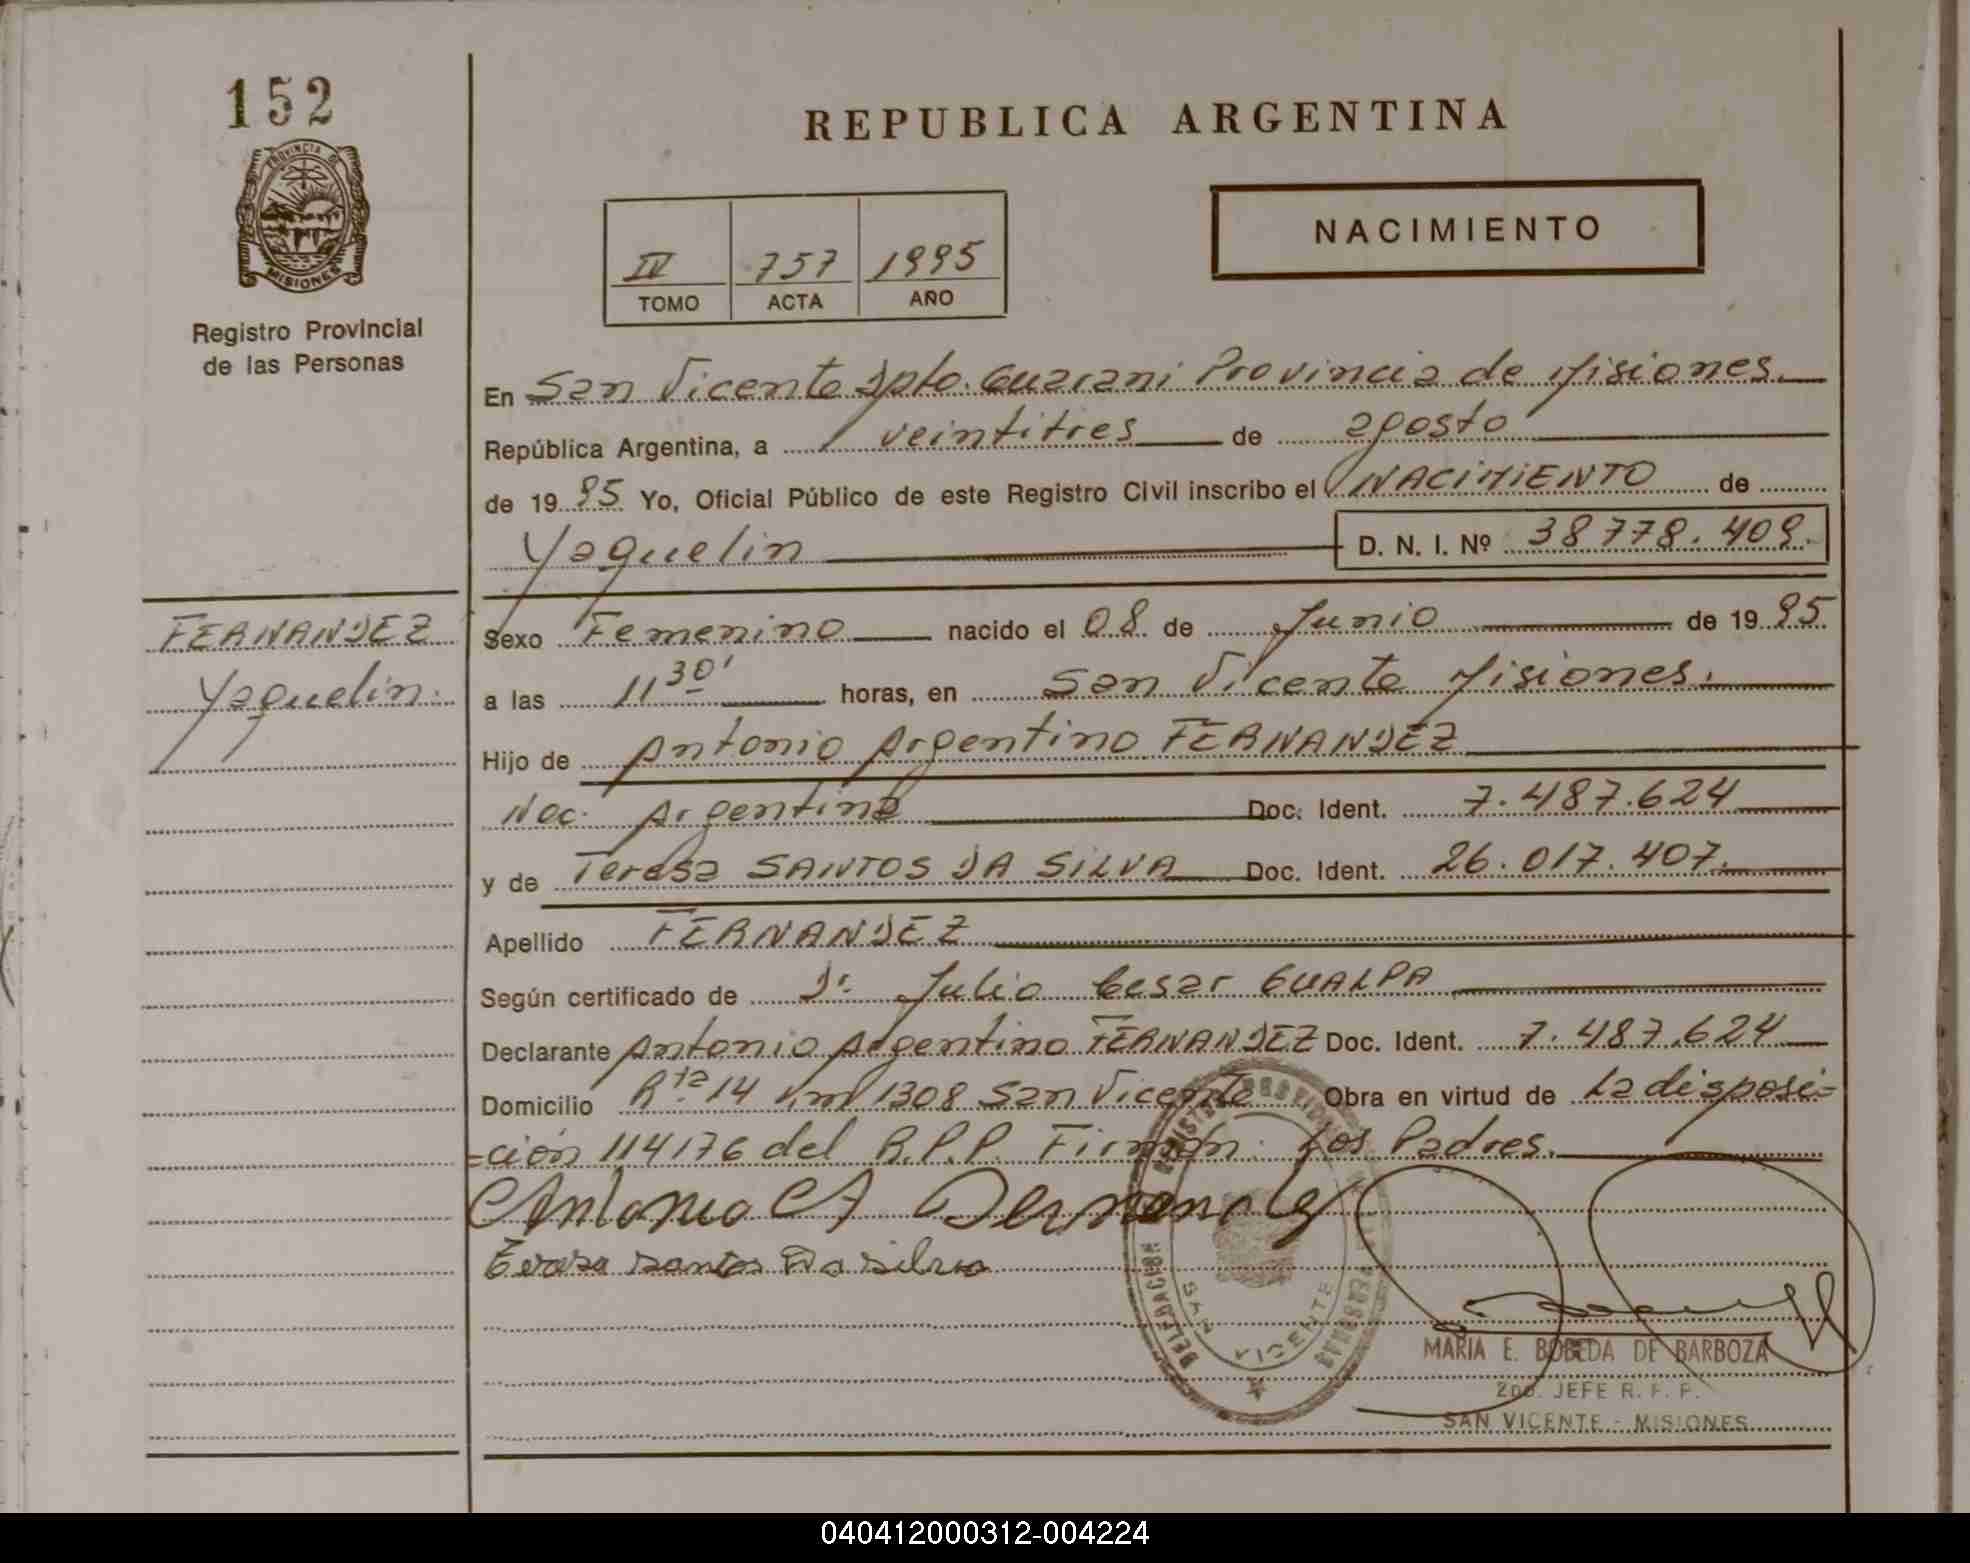 152
PROVINCIA DE
MISIONES
Registro Provincial
de las Personas
REPUBLICA ARGENTINA
NACIMIENTO
IV 757 1995
TOMO ACTA AÑO
En San Vicente Dpto. Guarani Provincia de Misiones.
República Argentina, a veintitres de agosto
de 19 95 Yo, Oficial Público de este Registro Civil inscribo el NACIMIENTO de
Yaquelin D. N. I. Nº 38778.409.
FERNANDEZ
Yaquelin.
Sexo Femenino nacido el 08 de Junio de 19 95.
a las 11 30' horas, en San Vicente Misiones.
Hijo de Antonio Argentino FERNANDEZ
Nac. Argentina Doc. Ident. 7.487.624
y de Teresa SANTOS DA SILVA Doc. Ident. 26.017.407.
Apellido FERNANDEZ
Según certificado de Dr. Julio Cesar GUALPA
Declarante Antonio Argentino FERNANDEZ Doc. Ident. 7.487.624
Domicilio Rta 14 Km 1308 San Vicente Obra en virtud de La disposi=
=ción 114176 del R.P.P. Firman: Los Padres.
Antonio A Fernandez
Teresa santos Da silva
DELEGACION
SAN VICENTE
PERSONAS
MARIA E. BOBEDA DE BARBOZA
2do. JEFE R. P. P.
SAN VICENTE - MISIONES
040412000312-004224